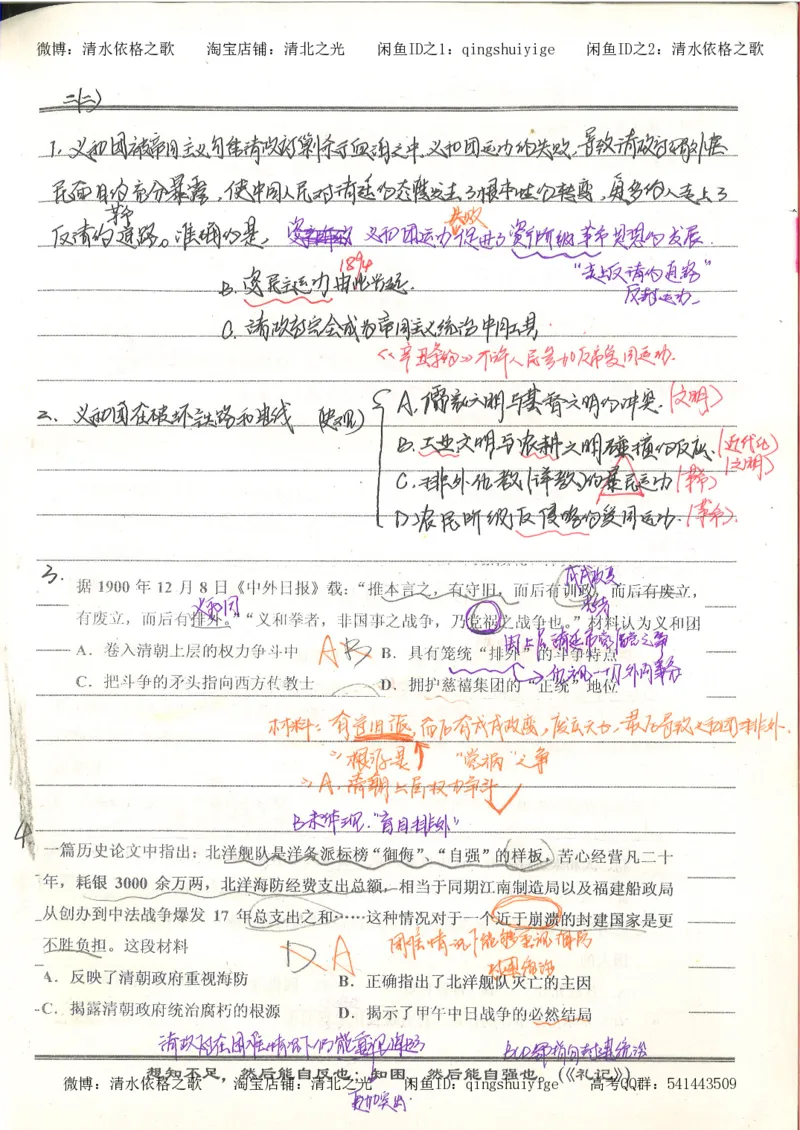 微博：清水依格之歌 淘宝店铺：清北之光 闲鱼ID之1：qingshuiyige 闲鱼ID之2：清水依格之歌
二(二)
1. 义和团被帝国主义勾结清政府剿杀于血泊之中，义和团运动的失败，导致清政府
民面目的充分暴露，使中国人民对清廷的态度发生了根本性的转变，更多的人走上了
革命
反清的道路。准确的是， 义和团运动促进了资产阶级革命思想的发展．
失败
1894
B. 民主运动由此兴起． “走上反清的道路”
反封运动
C. 清政府完全成为帝国主义统治中国工具
《辛丑条约》不许人民参加反帝爱国运动．
二、义和团在破坏铁路和电线 (史观)
A. 儒家文明与基督文明的冲突．(文明)
B. 工业文明与农耕文明碰撞的反应．(近代化)
(文明)
C. 排外仇教(洋教)的暴民运动 (革命)
D. 农民阶级反侵略的爱国运动．(革命)．
3.
据 1900 年 12 月 8 日《中外日报》载：“推本言之，有守旧，而后有训政，而后有废立，
戊戌政变
义和团
有废立，而后有排外。”“义和拳者，非国事之战争，乃党祸之战争也。”材料认为义和团
A．卷入清朝上层的权力争斗中 A B．具有笼统“排外”的斗争特点
仇视一切外国事务
C．把斗争的矛头指向西方传教士 D．拥护慈禧集团的“正统”地位
材料：有守旧派，而后有戊戌政变，废立大力，最后导致义和团排外．
⇒根源是 “党祸”之争
⇒A. 清朝上层权力争斗
B未体现“盲目排外”
4.
一篇历史论文中指出：北洋舰队是洋务派标榜“御侮”、“自强”的样板，苦心经营凡二十
年，耗银 3000 余万两，北洋海防经费支出总额，相当于同期江南制造局以及福建船政局
从创办到中法战争爆发 17 年总支出之和……这种情况对于一个近于崩溃的封建国家是更
不胜负担。这段材料
D A 困难情况下能够重视海防
封建统治
A．反映了清朝政府重视海防 B．正确指出了北洋舰队灭亡的主因
C．揭露清朝政府统治腐朽的根源 D．揭示了甲午中日战争的必然结局
清政府在困难情况下仍能重视海防 BCD都指向封建统治
想知不足，然后能自反也；知困，然后能自强也。(《礼记》)
微博：清水依格之歌 淘宝店铺：清北之光 闲鱼ID：qingshuiyige 高考QQ群：541443509
更加突出